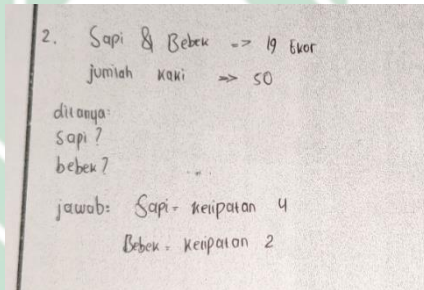 2. Sapi & Bebek => 19 Ekor
jumlah kaki => 50
ditanya:
Sapi ?
bebek ?
jawab: Sapi = kelipatan 4
Bebek = kelipatan 2